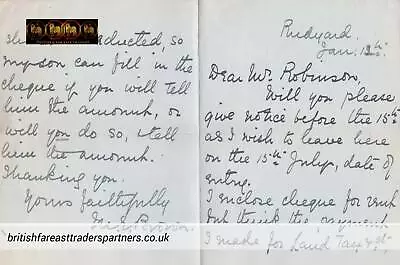 Rudyard.
Jan. 13th.
Dear Mr. Robinson,
Will you please
give notice before the 15th
as I wish to leave here
on the 15th July, date of
entry.
I enclose cheque for rent
but think the payment
I made for Land Tax
ducted, so
can fill in the
cheque if you will tell
him the amount, or
will you do so, & tell
him the amount.
Thanking you.
Yours faithfully
britishfareasttraderspartners.co.uk